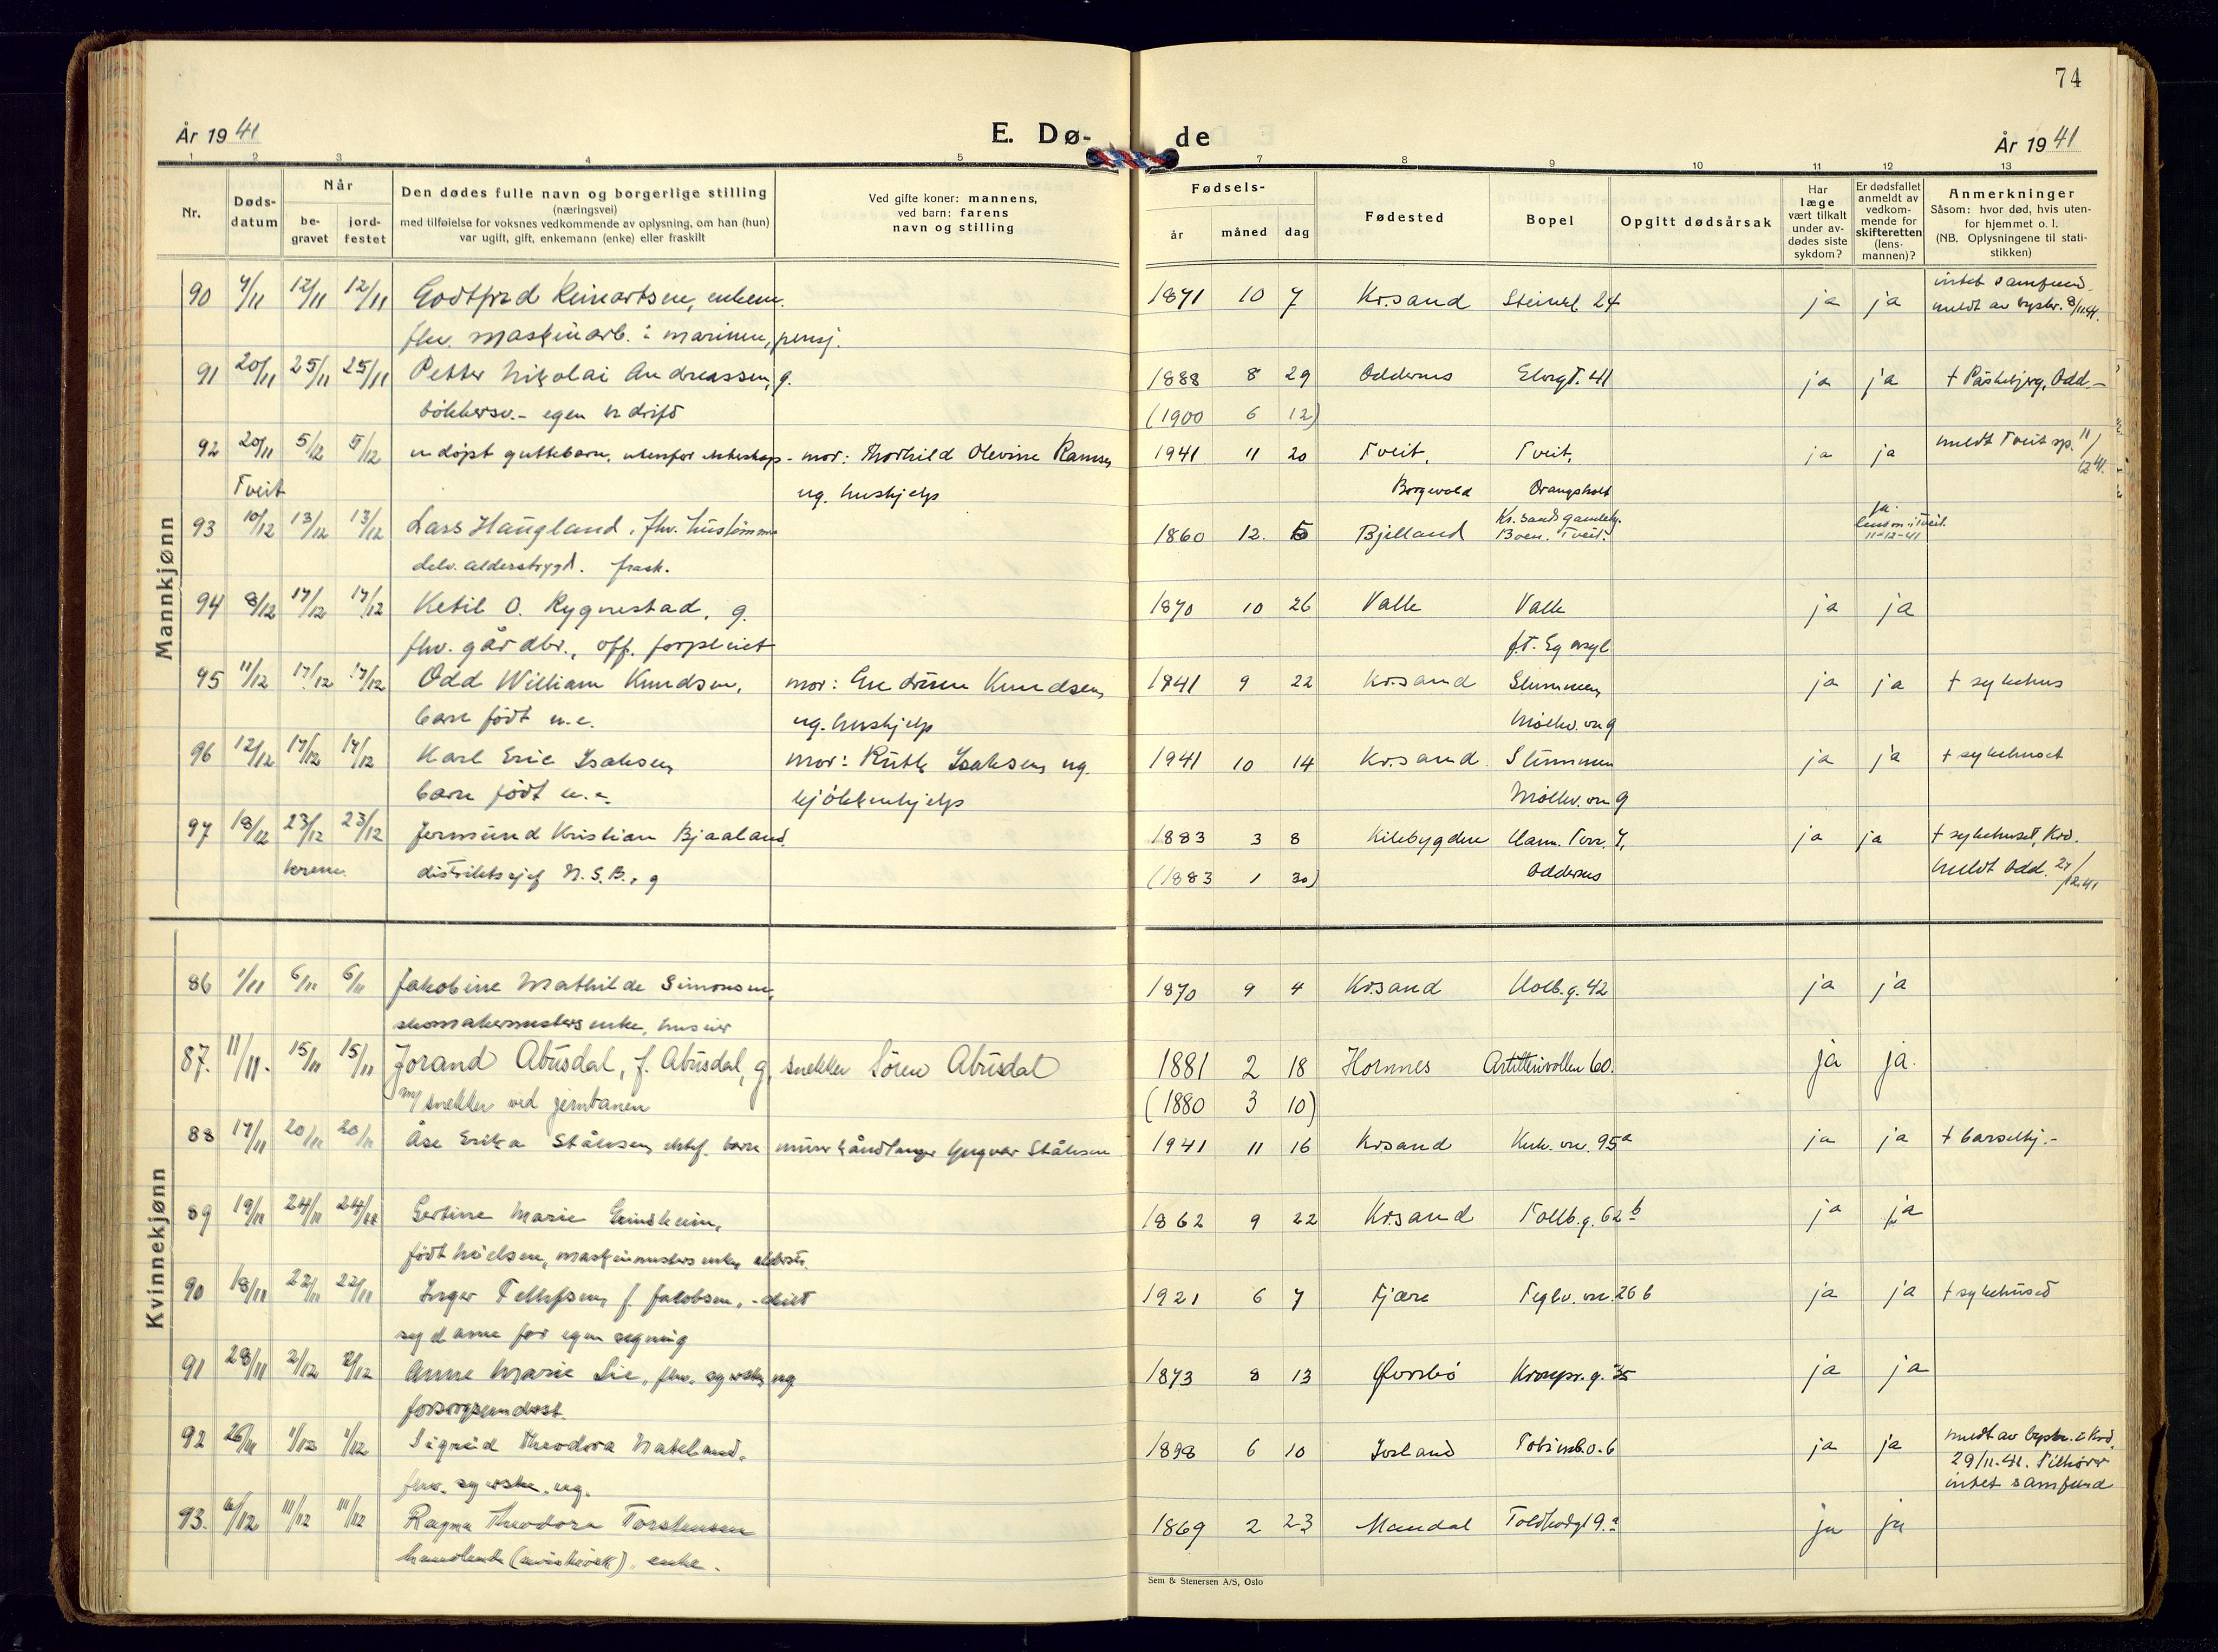 74
År 1941
E. Dø-
de
År 1941
1 2 3 4 5 7 8 9 10 11 12 13
Nr.
Døds-
datum
Når
be-
gravet
jord-
festet
Den dødes fulle navn og borgerlige stilling
(næringsvei)
med tilføielse for voksnes vedkommende av oplysning, om han (hun)
var ugift, gift, enkemann (enke) eller fraskilt
Ved gifte koner: mannens,
ved barn: farens
navn og stilling
Fødsels-
år måned dag
Fødested
Bopel
Opgitt dødsårsak
Har
læge
vært tilkalt
under av-
dødes siste
sykdom?
Er dødsfallet
anmeldt av
vedkom-
mende for
skifteretten
(lens-
mannen)?
Anmerkninger
Såsom: hvor død, hvis uten-
for hjemmet o. l.
(NB. Oplysningene til stati-
stikken)
Mannkjønn
90 7/11 12/11 12/11 Godtfred Reinertsen, enkem. 1871 10 7 Kr.sand Steinkl. 24 ja ja intet samfund.
fhv. maskinarb. i marinen, pensj. meldt av bystyr. 8/11.41.
91 20/11 25/11 25/11 Petter Nikolai Andreassen, g. 1888 8 29 Oddernes Elvegt. 41 ja ja
bökkersv. - egen bedrift (1900 6 12)
92 20/11 5/12 5/12 udøpt guttebarn, utenfor ekteskap - mor: Thorhild Olevine Ramsøy 1941 11 20 Tveit, Tveit, ja ja meldt Tveit sp. 11/12 41.
Tveit ug. hushjelp Borgevold Drangsholt
93 10/12 13/12 13/12 Lars Haugland, fhv. hustömmer 1860 12. 5 Bjelland Kr.sands gamlehj. Boen. Tveit. ja. lensm. i Tveit. 11-12-41
delv. alderstrygd. frask.
94 8/12 17/12 17/12 Ketil O. Rygnestad, g. 1870 10 26 Valle Valle ja ja
fhv. gårdbr., off. forpleiet f.t. Eg asyl
95 11/12 17/12 17/12 Odd William Knudsen, mor: Knudsen, 1941 9 22 Kr.sand ja ja † sykehus
barn født u.e. ug. hushjelp
96 12/12 17/12 17/12 Karl Eric Isaksen, mor: Ruth Isaksen, ug. 1941 10 14 Kr.sand ja ja † sykehuset
barn født u.e. kjökkenhjelp
97 18/12 23/12 23/12 Jermund Kristian Bjaaland, 1883 3 8 Kilebygden ja ja † sykehuset, Krs.
krem. distriktssjef N.S.B., g (1883 1 30) Oddernes meldt Odd. 24/12.41
Kvinnekjønn
86 1/11 6/11 6/11 Jakobine Mathilde Simonsen, 1870 9 4 Kr.sand Holb.g. 42 ja ja
skomakermesters enke, huseier
87. 11/11. 15/11 15/11 Jorand Abusdal, f. Abusdal, g. snekker Sören Abusdal 1881 2 18 Hornnes Artillerivollen 60. ja ja.
m/ snekker ved jernbanen (1880 3 10)
88 17/11 20/11 20/11 Åse Erika Stålesen, ektef. barn murerhåndlanger Yngvar Stålesen 1941 11 16 Kr.sand 95a ja ja † barselhj.-
89 19/11 24/11 24/11 Gertine Marie Grindheim, 1862 9 22 Kr.sand Tollb.g. 62b ja ja
født Nielsen, maskinmesters enke, alderstr.
90 18/11 22/11 22/11 Inger Tellefsen, f. Jakobsen, - skilt 1921 6 7 Fjære Teglv. vn. 26b ja ja † sykehuset
sydame for egen regning
91 28/11 2/12 2/12 Anne Marie Lie, fhv. syerske, ug. 1873 8 13 Øvrebø Kronpr.g. 35 ja ja
forsorgsunderst.
92 26/11 1/12 1/12 Sigrid Theodora Nateland, 1898 6 10 Iveland 6 ja ja meldt av bystyr. i Krs.
fhv. syerske, ug. 29/11.41. Tilhører
intet samfund
93. 6/12 11/12 11/12 Ragna Theodora Torstensen 1869 2 23 Mandal Toldbodgt 9.a ja ja
handlende, enke.
Sem & Stenersen A/S, Oslo